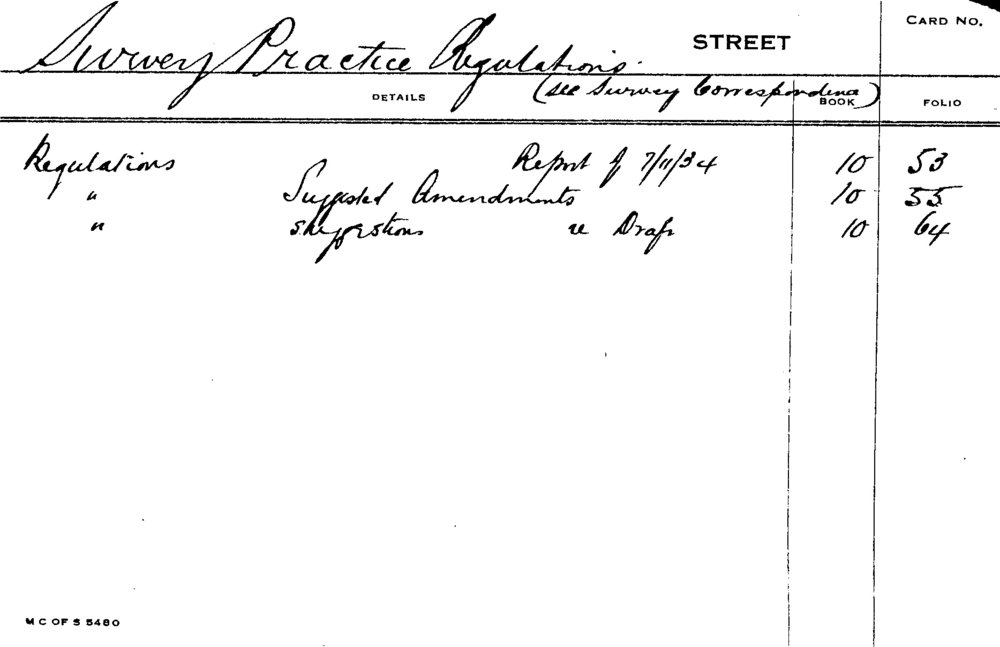 Survey Practice Regulations. STREET CARD No.
(see Survey Correspondence)
DETAILS BOOK FOLIO
Regulations Report of 7/11/34 10 53
" Suggested Amendments 10 55
" Suggestions re Draft 10 64
M C OF S 5480